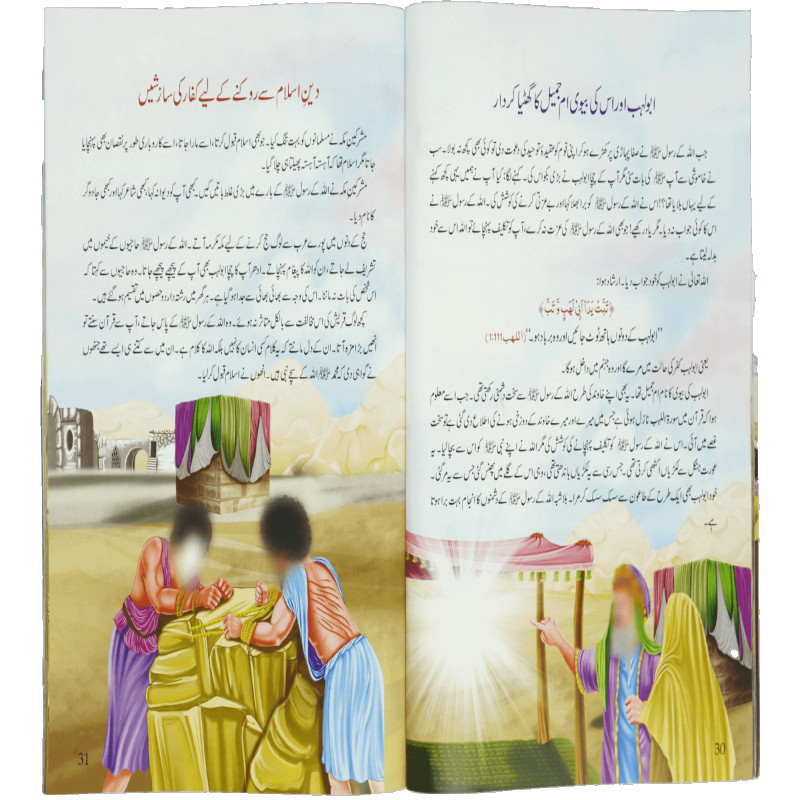 ابولہب اور اس کی بیوی ام جمیل کا گھٹیا کردار
جب اللہ کے رسول ﷺ نے صفا پہاڑی پر کھڑے ہو کر اپنی قوم کو عقیدۂ توحید کی دعوت دی تو کوئی بھی کچھ نہ بولا۔ سب
نے خاموشی سے آپ ﷺ کی بات سنی مگر آپ کے چچا ابولہب نے بڑی بکواس کی۔ کہنے لگا: کیا آپ نے ہمیں یہی کچھ کہنے
کے لیے یہاں بلایا تھا؟! اس نے اللہ کے رسول ﷺ کو برا بھلا کہا اور بے عزتی کرنے کی کوشش کی۔ اللہ کے رسول ﷺ نے
اس کا کوئی جواب نہ دیا۔ مگر یاد رکھیے! جو بھی اللہ کے رسول ﷺ کی عزت نہ کرے، آپ کو تکلیف پہنچائے تو اللہ اس سے خود
بدلہ لیتا ہے۔
اللہ تعالیٰ نے ابولہب کو خود جواب دیا۔ ارشاد ہوا:
﴿تَبَّتْ يَدَآ أَبِى لَهَبٍ وَّتَبَّ﴾
”ابولہب کے دونوں ہاتھ ٹوٹ جائیں اور وہ برباد ہو۔“ (اللھب ۱:۱۱۱)
یعنی ابولہب کفر کی حالت میں مرے گا اور وہ جہنم میں داخل ہوگا۔
ابولہب کی بیوی کا نام ام جمیل تھا۔ یہ بھی اپنے خاوند کی طرح اللہ کے رسول ﷺ سے سخت دشمنی رکھتی تھی۔ جب اسے معلوم
ہوا کہ قرآن میں سورۃ اللہب نازل ہوئی ہے جس میں میرے اور میرے خاوند کے دوزخی ہونے کی اطلاع دی گئی ہے تو سخت
غصے میں آئی۔ اس نے اللہ کے رسول ﷺ کو تکلیف پہنچانے کی کوشش کی مگر اللہ نے اپنے نبی ﷺ کو اس سے بچا لیا۔ یہ
عورت جنگل سے لکڑیاں اکٹھی کرتی تھی۔ جس رسی سے یہ لکڑیاں باندھتی تھی، وہی اس کے گلے میں پھنس گئی جس سے یہ مر گئی۔
خود ابولہب بھی ایک طرح کے طاعون سے سسک سسک کر مرا۔ بلاشبہ اللہ کے رسول ﷺ کے دشمنوں کا انجام بہت برا ہوتا
ہے۔
30
دینِ اسلام سے روکنے کے لیے کفار کی سازشیں
مشرکینِ مکہ نے مسلمانوں کو بہت تنگ کیا۔ جو بھی اسلام قبول کرتا، اسے مارا جاتا، اسے کاروباری طور پر نقصان بھی پہنچایا
جاتا مگر اسلام تھا کہ آہستہ آہستہ پھیلتا ہی چلا گیا۔
مشرکینِ مکہ نے اللہ کے رسول ﷺ کے بارے میں بڑی غلط باتیں کیں۔ کبھی آپ کو دیوانہ کہا، کبھی شاعر کہا اور کبھی جادوگر
کا نام دیا۔
حج کے دنوں میں پورے عرب سے لوگ حج کرنے کے لیے مکہ مکرمہ آتے۔ اللہ کے رسول ﷺ حاجیوں کے خیموں میں
تشریف لے جاتے، ان کو اللہ کا پیغام پہنچاتے۔ ادھر آپ کا چچا ابولہب بھی آپ کے پیچھے پیچھے جاتا۔ وہ حاجیوں سے کہتا کہ
اس شخص کی بات نہ ماننا۔ اس کی وجہ سے بھائی بھائی سے جدا ہو گیا ہے۔ ہر گھر میں رشتہ دار دو حصوں میں تقسیم ہو گئے ہیں۔
کچھ لوگ قریش کی اس مخالفت سے بالکل متاثر نہ ہوئے۔ وہ اللہ کے رسول ﷺ کے پاس جاتے، آپ سے قرآن سنتے تو
انھیں بڑا مزہ آتا۔ ان کے دل مانتے کہ یہ کلام کسی انسان کا نہیں بلکہ اللہ کا کلام ہے۔ ان میں سے کتنے ہی ایسے تھے جنھوں
نے گواہی دی کہ محمد ﷺ اللہ کے سچے نبی ہیں۔ انھوں نے اسلام قبول کر لیا۔
31